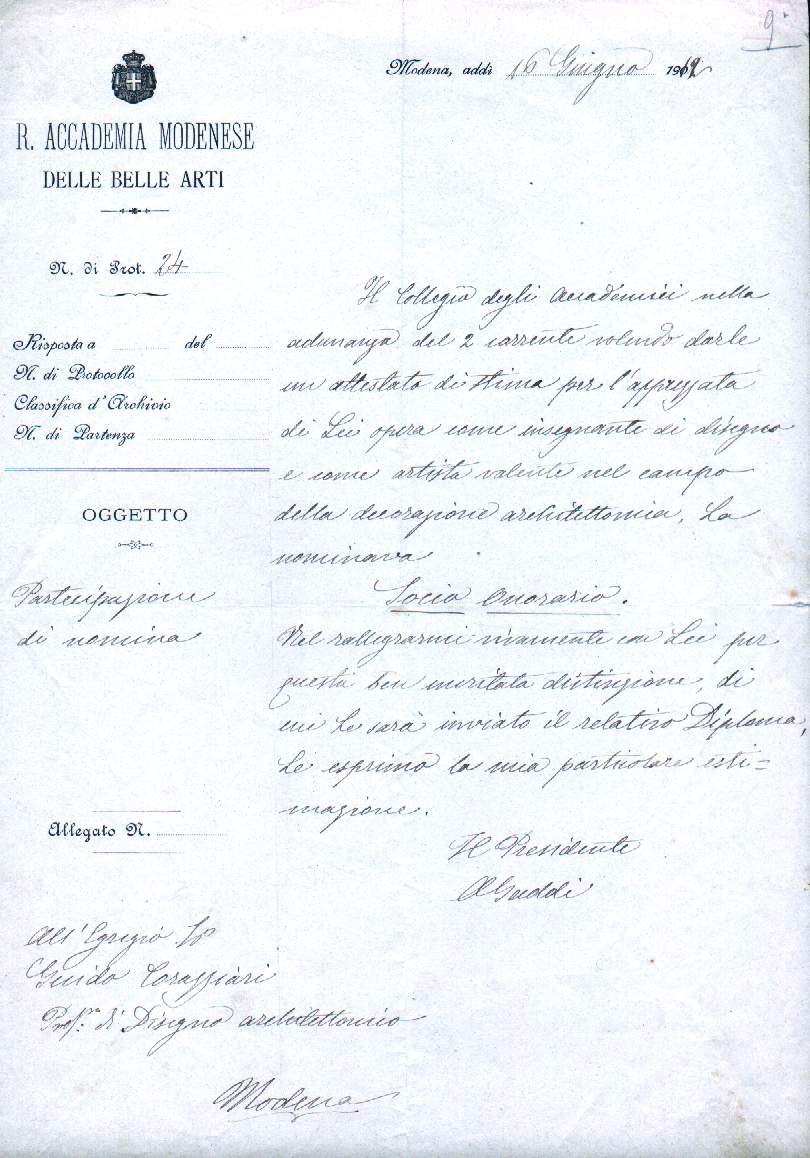 9
Modena, addì 16 Giugno 1912
R. ACCADEMIA MODENESE
DELLE BELLE ARTI
N. di Prot. 24
Risposta a del
N. di Protocollo
Classifica d'Archivio
N. di Partenza
OGGETTO
Partecipazione
di nomina
Allegato N.
Il Collegio degli Accademici nella
adunanza del 2 corrente volendo darle
un attestato di stima per l'apprezzata
di Lei opera come insegnante di disegno
e come artista valente nel campo
della decorazione architettonica, La
nominava
Socio Onorario.
Nel rallegrarmi vivamente con Lei per
questa ben meritata distinzione, di
cui Le sarà inviato il relativo Diploma,
Le esprimo la mia particolare esti=
mazione.
Il Presidente
All'Egregio Sr
Guido
Profre di Disegno architettonico
Modena